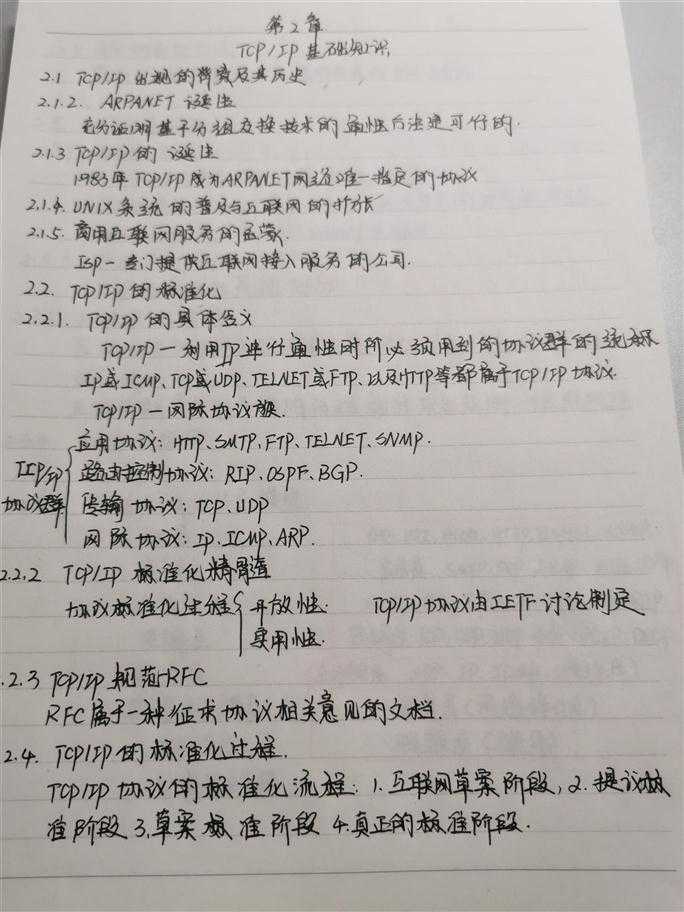 第2章
TCP/IP 基础知识
2.1 TCP/IP 出现的背景及其历史
2.1.2. ARPANET 诞生
充分证明基于分组交换技术的通信方法是可行的.
2.1.3 TCP/IP 的 诞生
1983年 TCP/IP 成为ARPANET网络唯一指定的协议
2.1.4. UNIX 系统 的普及与互联网的扩张
2.1.5. 商用互联网服务的启蒙.
ISP - 专门提供互联网接入服务的公司.
2.2. TCP/IP 的标准化
2.2.1. TCP/IP 的具体含义
TCP/IP — 利用IP进行通信时所必须用到的协议群的统称
IP或ICMP、TCP或UDP、TELNET或FTP、以及HTTP等都属于TCP/IP协议.
TCP/IP — 网际协议族.
应用协议: HTTP、SMTP、FTP、TELNET、SNMP.
TCP/IP 路由控制协议: RIP、OSPF、BGP.
协议群 传输 协议: TCP、UDP
网际协议: IP、ICMP、ARP.
2.2.2 TCP/IP 标准化精髓
协议标准化过程 开放性. TCP/IP协议由IETF讨论制定
实用性.
.2.3 TCP/IP 规范-RFC
RFC属于一种征求协议相关意见的文档.
2.4. TCP/IP的标准化过程.
TCP/IP 协议的标准化流程: 1. 互联网草案阶段, 2. 提议标
准阶段 3. 草案标准阶段 4. 真正的标准阶段.